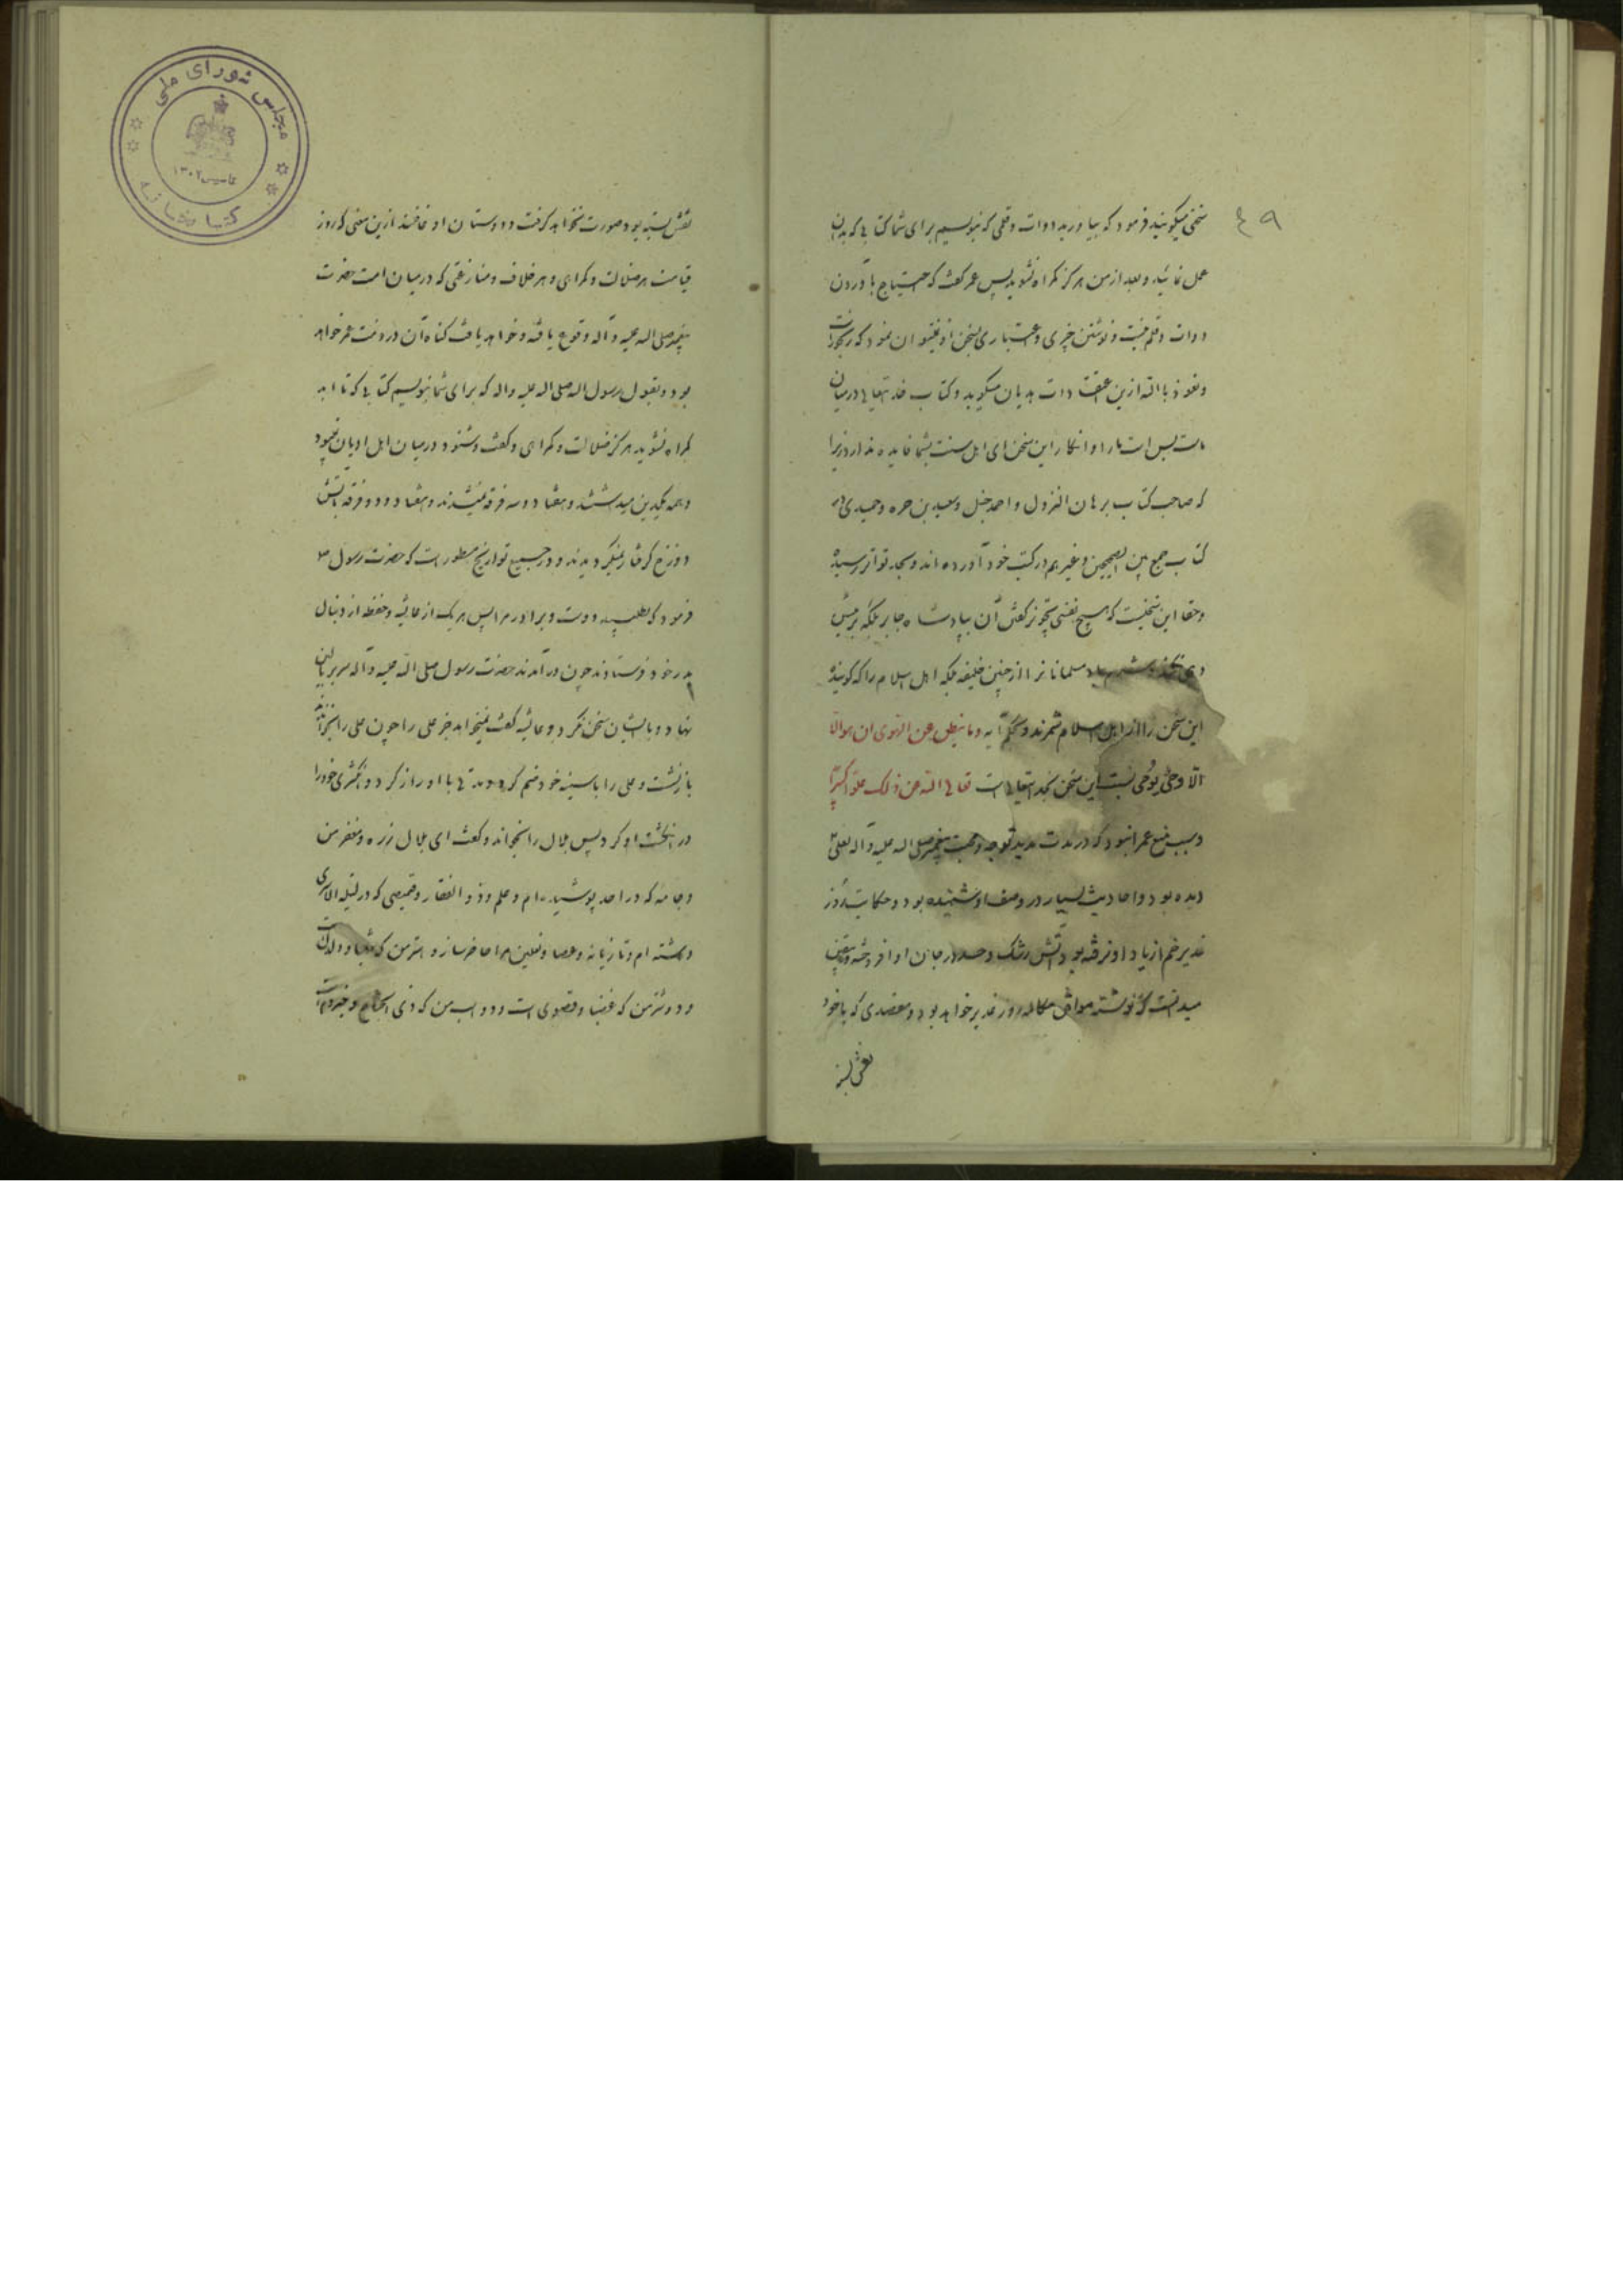 ۴۹
سخنی میگویید فرمود که بیاورید دوات و قلمی که بنویسیم برای شما کتابی که بدان
عمل نمائید و بعد از من هرکز کمراه نشوید پس عمر کفت که احتیاج باوردن
دوات و قلم نیست و نوشتن چیزی و اعتباری بسخن او نمیتوان نمود که رنجور است
و نعوذ بالله ازین عقیدت هدیان میکوید و کتاب خدایتعالی درمیان
ماست بس است ما را و انکار این سخن ای اهل سنت بشما فایده ندارد زیرا
که صاحب کتاب برهان النزول و احمد حنبل و سعید بن حره و حمیدی در
کتاب جمع بین الصحیحین و غیرهم در کتب خود آورده اند و بحد تواتر رسیده
و حقا این سخنیست که هیچ نفسی تجویز کفتن آن بپادشاه جابر بلکه برئیس
دهی نکند و شرم باد مسلمانانرا از چنین خلیفه بلکه اهل اسلام را که کوینده
این سخن را از اهل اسلام شمرند و بحکم آیه وما ینطق عن الهوی ان هو الا
الا وحی یوحی نسبت این سخن بخدایتعالی است تعالی الله عن ذلک علوا کبیرا
و سبب منع عمر این بود که در مدت مدید توجه و محبت پیغمبر صلی اله علیه و آله بعلی
دیده بود و احادیث بسیار در وصف او شنیده بود و حکایت روز
غدیر خم از یاد او نرفته بود و آتش رشک و حسد در جان او افروخته و یقین
میدانست که نوشته موافق مکالمه روز غدیر خواهد بود و مقصدی که با خود
نقش بسته
مجلس شورای ملی
تاسیس ۱۳۰۲
کتابخانه
نقش بسته بود صورت نخواهد کرفت و دوستان او غافلند ازین معنی که روز
قیامت هر ضلالت و کمراهی و هر خلاف و منازعتی که درمیان امت حضرت
پیغمبر صلی اله علیه و آله وقوع یافته و خواهد یافت کناه آن در ذمت عمر خواهد
بود و بقول رسول اله صلی اله علیه واله که برای شما بنویسم کتابی که تا ابد
کمراه نشوید هرکز ضلالت و کمراهی و کفت و شنود درمیان اهل ادیان نمیبود
و همه یکدین میداشتند و هفتاد و سه فرقه نمیشدند و هفتاد و دو فرقه بآتش
دوزخ کرفتار نمیکردیدند و در جمیع تواریخ مسطور است که حضرت رسول ص
فرمود که بطلبید دوست و برادر مرا پس هر یک از عائشه و حفظه از دنبال
پدر خود فرستادند چون درآمدند حضرت رسول صلی الله علیه و آله سر بر بالین
نهاد و با ایشان سخن نکرد و عائشه کفت نمیخواهد جز علی را چون علی را بخواندند
بازنشست و علی را با سینه خود ضم کرد و مدتی با او راز کرد و انکشتری خود را
در انکشت او کرد پس بلال را بخواند و کفت ای بلال زره و مغفر من
و جامه که در احد پوشیده ام و علم و ذو الفقار و قمیصی که در لیله الاسری
داشته ام و تازیانه و عصا و نعلین مرا حاضر ساز و استر من که شهبا و دلدل است
و دو شتر من که غضبا و قصوی است و دو اسب من که ذی الجناح و خیزوم است